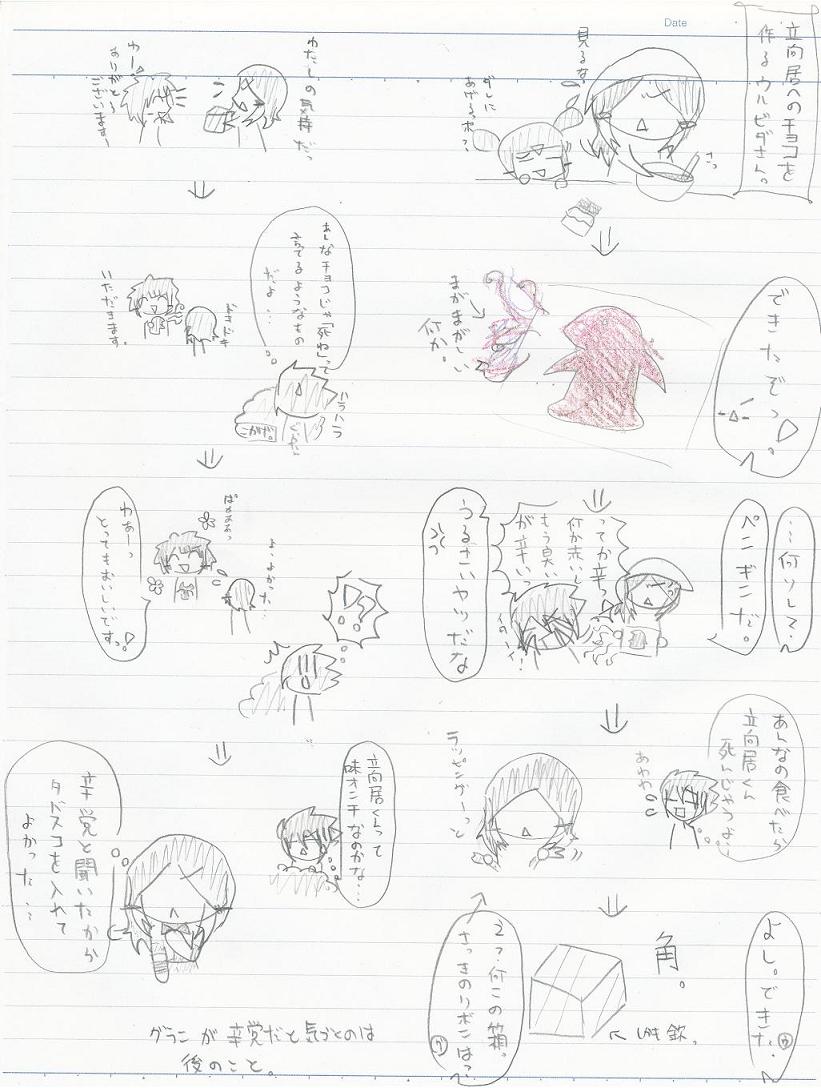 Date
立向居へのチョコを
作るウルビダさん。
見るな。
ダレに
あげるっポ?
さっ
できたぞっ!
まがまがしい
何か。
…何ソレ…
ペンギンだ。
ってか辛っ
何か赤いし
もう臭い
が辛いっ
うるさいヤツだな
あんなの食べたら
立向居くん
死んじゃうよ…
あわわ
ラッピングーっと
よし。できた。
ウ
角。
え?何この箱。
さっきのリボンは?
グ
わたしの気持だっ
わー
ありがとう
ございますー
あんなチョコじゃ「死ね」って
言ってるようなもの
だよ…
ドキドキ
いただきます。
ハラハラ
こかげ。
ぱぁああっ
わぁーっ
とってもおいしいです。
よ、よかった…
!?
立向居くんって
味オンチなのかな…
辛党と聞いたから
タバスコを入れて
よかった…
グランが辛党だと気づくのは
後のこと。